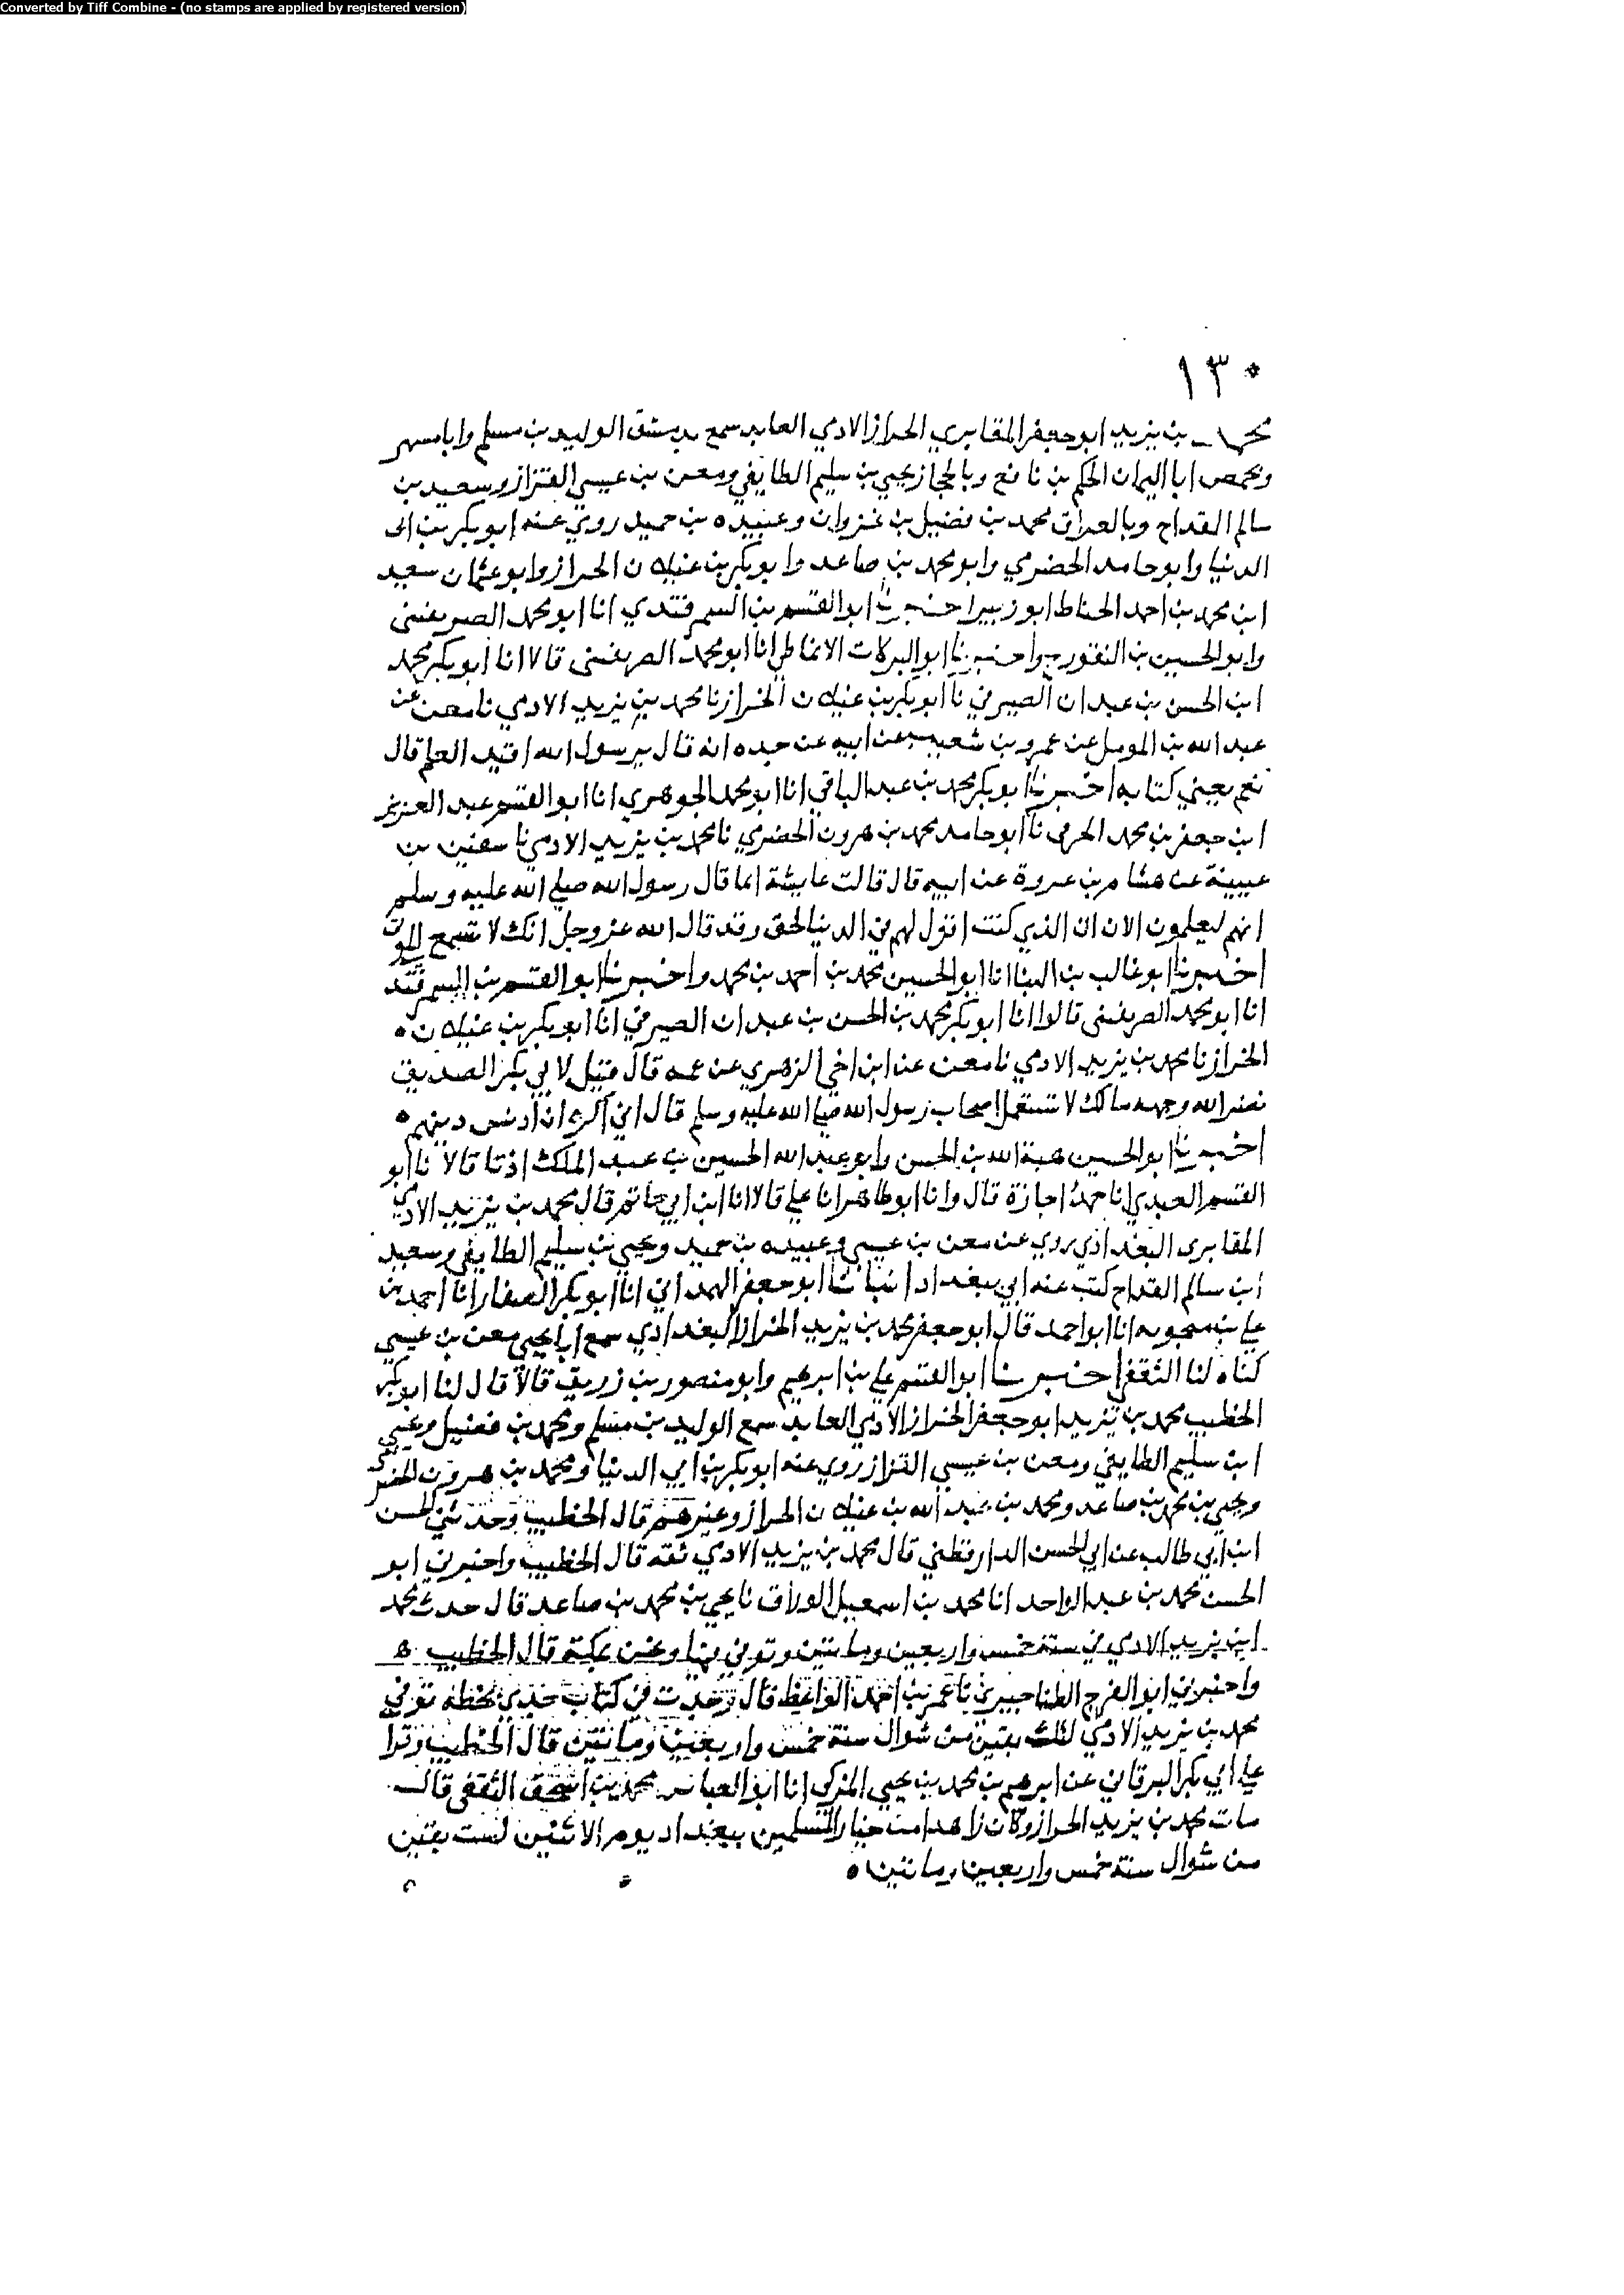 Converted by Tiff Combine - (no stamps are applied by registered version)
١٣٠
محمد بن يزيد ابو جعفر المقابري الخراز الادمي العابد سمع بدمشق الوليد بن مسلم وابا مسهر
وبحمص ابا اليمان الحكم بن نافع وبالحجاز يحيى بن سليم الطايفي ومعن بن عيسى القزاز وسعيد بن
سالم القداح وبالعراق محمد بن فضيل بن غزوان وعبيده بن حميد روي عنه ابو بكر بن ابى
الدنيا وابو حامد الحضرمي وابو محمد بن صاعد وابو بكر بن عيلان الخراز وابو عثمان سعيد
ابن محمد بن احمد الحناط ابو زبير اخبرنا ابو القسم بن السمرقندي انا ابو محمد الصريفينى
وابو الحسين بن النقور ح واخبرنا ابو البركات الانماطي انا ابو محمد الصريفينى قالا انا ابو بكر محمد
ابن الحسن بن عبدان الصيرفي نا ابو بكر بن عيلان الخراز نا محمد بن يزيد الادمي نا معن عن
عبد الله بن المومل عن عمرو بن شعيب عن ابيه عن جده انه قال يرسول الله اقيد العلم قال
نعم يعني كتابه اخبرنا ابو بكر محمد بن عبد الباقي انا ابو محمد الجوهري انا ابو القسم عبد العزيز
ابن جعفر بن محمد الخرقى نا ابو حامد محمد بن هرون الحضرمي نا محمد بن يزيد الادمي نا سفين بن
عيينة عن هشام بن عروة عن ابيه قال قالت عايشة انما قال رسول الله صلي الله عليه وسلم
انهم ليعلمون الان ان الذي كنت اقول لهم في الدنيا لحق وقد قال الله عز وجل انك لا تسمع الموتى
اخبرنا ابو غالب بن البنا انا ابو الحسين محمد بن احمد بن محمد واخبرنا ابو القسم بن السمرقند
انا ابو محمد الصريفينى قالوا انا ابو بكر محمد بن الحسن بن عبدان الصيرفي انا ابو بكر بن عيلان
الخراز نا محمد بن يزيد الادمي نا معن عن ابن اخي الزهري عن عمه قال قيل لابي بكر الصديق
نضر الله وجهه مالك لا تستعمل اصحاب رسول الله صلي الله عليه وسلم قال اني اكره ان ادنس دينهم
اخبرنا ابو الحسين هبة الله بن الحسن وابو عبد الله الحسين بن عبد الملك اذنا قالا نا ابو
القسم العبدي انا حمد اجازة قال وانا ابو طاهر انا علي قالا انا ابن ابي حاتم قال محمد بن يزيد الادمي
المقابرى البغدادي روي عن معن بن عيسى وعبيده بن حميد ويحيى بن سليم الطايفي وسعيد
ابن سالم القداح كتب عنه ابي ببغداد انبانا ابو جعفر الهمداني انا ابو بكر الصفار انا احمد بن
علي بن منجويه انا ابو احمد قال ابو جعفر محمد بن يزيد الخراز البغدادي سمع ابا يحيى معن بن عيسى
كناه لنا الثقفي اخبرنا ابو القسم علي بن ابرهيم وابو منصور بن زريق قالا قال لنا ابو بكر
الخطيب محمد بن يزيد ابو جعفر الخراز الادمي العابد سمع الوليد بن مسلم ومحمد بن فضيل ويحيى
ابن سليم الطايفي ومعن بن عيسى القزاز روي عنه ابو بكر بن ابي الدنيا ومحمد بن هرون الحضرمى
ويحيى بن محمد بن صاعد ومحمد بن عبد الله بن عيلان الخراز وغيرهم قال الخطيب وحدثني الحسن
ابن ابي طالب عن ابي الحسن الدارقطني قال محمد بن يزيد الادمي ثقه قال الخطيب واخبرني ابو
الحسن محمد بن عبد الواحد انا محمد بن اسمعيل الوراق نا يحيى بن محمد بن صاعد قال حدث محمد
ابن يزيد الادمي في سنة خمس واربعين ومائتين وتوفي بها ونحن بمكة قال الخطيب
واخبرني ابو الفرج الطناجيري نا عمر بن احمد الواعظ قال وجدت في كتاب جدي بخطه توفي
محمد بن يزيد الادمي لثلث بقين من شوال سنة خمس واربعين ومائتين قال الخطيب وقرا
علي ابي بكر البرقاني عن ابرهيم بن محمد بن يحيى المزكى انا ابو العباس محمد بن اسحق الثقفى قال
مات محمد بن يزيد الخراز وكان زاهدا من خيار المسلمين ببغداد يوم الاثنين لست بقين
من شوال سنة خمس واربعين ومائتين